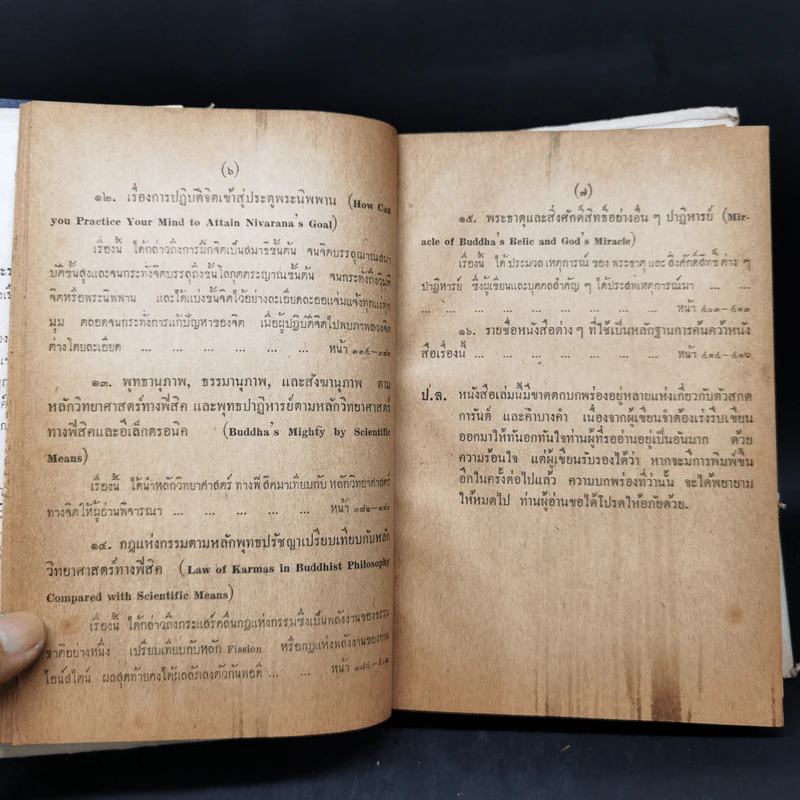 (๖)
๑๒. เรื่องการปฏิบัติจิตเข้าสู่ประตูพระนิพพาน (How Can
you Practice Your Mind to Attain Nivarana's Goal)
เรื่องนี้ ได้กล่าวถึงการฝึกจิตเป็นสมาธิชั้นต้น จนจิตบรรลุฌาณสมา
บัติชั้นสูงและจนกระทั่งจิตบรรลุถึงชั้นโลกุตตระญาณชั้นต้น จนกระทั่งถึงวิมุติ
จิตหรือพระนิพพาน และได้แบ่งชั้นจิตไว้อย่างละเอียดละออแจ่มแจ้งทุกแง่ทุก
มุม ตลอดจนกระทั่งการแก้ปัญหาของจิต เมื่อผู้ปฏิบัติจิตไปพบภาพลวงจิต
ต่างโดยละเอียด ... ... ... ... ... ... หน้า
๑๓. พุทธานุภาพ, ธรรมานุภาพ, และสังฆานุภาพ ตาม
หลักวิทยาศาสตร์ทางฟิสิค และพุทธปาฏิหารย์ตามหลักวิทยาศาสตร์
ทางฟิสิคและอีเล็กตรอนิค (Buddha's Mighty by Scientific
Means)
เรื่องนี้ ได้นำหลักวิทยาศาสตร์ ทางฟิสิคมาเทียบกับ หลักวิทยาศาสตร์
ทางจิตให้ผู้อ่านพิจารณา ... ... ... ... หน้า
๑๔. กฎแห่งกรรมตามหลักพุทธปรัชญาเปรียบเทียบกับหลัก
วิทยาศาสตร์ทางฟิสิค (Law of Karmas in Buddhist Philosophy
Compared with Scientific Means)
เรื่องนี้ ได้กล่าวถึงกระแสร์คลื่นกฎแห่งกรรมซึ่งเป็นพลังงานของธรรม
ชาติอย่างหนึ่ง เปรียบเทียบกับหลัก Fission หรือกฎแห่งพลังงานของท่าน
ไอน์สไตน์ ผลสุดท้ายคงได้ผลลัภลงตัวกันพอดี ... ... หน้า
(๗)
๑๕. พระธาตุและสิ่งศักดิ์สิทธิ์อย่างอื่น ๆ ปาฏิหารย์ (Mir-
acle of Buddha's Relic and God's Miracle)
เรื่องนี้ ได้ ประมวล เหตุการณ์ ของ พระธาตุ และ สิ่งศักดิ์สิทธิ์ ต่าง ๆ
ปาฏิหารย์ ซึ่งผู้เขียนและบุคคลสำคัญ ๆ ได้ประสพเหตุการณ์มา ... ...
... ... ... ... ... ... ... หน้า ๕๐๓—๕๓๓
๑๖. รายชื่อหนังสือต่าง ๆ ที่ใช้เป็นหลักฐานการค้นคว้าหนัง
สือเรื่องนี้ ... ... ... ... ... ... หน้า ๕๓๔—๕๓๖
ป.ล. หนังสือเล่มนี้มีขาดตกบกพร่องอยู่หลายแห่งเกี่ยวกับตัวสกด
การันต์ และคำบางคำ เนื่องจากผู้เขียนจำต้องเร่งรีบเขียน
ออกมาให้ทันอกทันใจท่านผู้ที่รออ่านอยู่เป็นอันมาก ด้วย
ความร้อนใจ แต่ผู้เขียนรับรองได้ว่า หากจะมีการพิมพ์ขึ้น
อีกในครั้งต่อไปแล้ว ความบกพร่องที่ว่านั้น จะได้พยายาม
ให้หมดไป ท่านผู้อ่านขอได้โปรดให้อภัยด้วย.